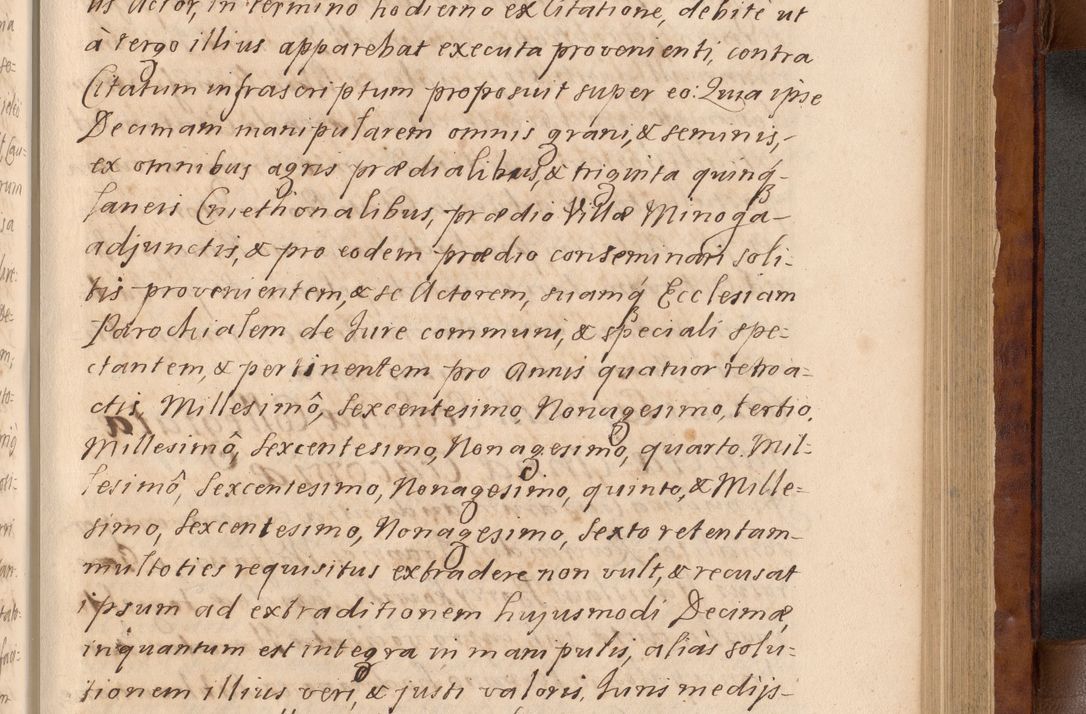 us Actor, in termino hodierno ex Citatione, debite ut
à tergo illius apparebat executa provenienti, contra
Citatum infrascriptum proposuit super eo: Quia ipse
Decimam manipularem omnis grani, & seminis,
ex omnibus agris prædialibus, & triginta quinq́
laneis Cmethonalibus, prædio Villæ Minoga
adjunctis, & pro eodem prædio conseminari soli-
tis provenientem, & se Actorem, suamq́ Ecclesiam
Parochialem de Jure communi, & speciali spe=
ctantem, & pertinentem pro Annis quatuor retroa=
ctis Millesimô, Sexcentesimo Nonagesimo, tertio,
Millesimô, Sexcentesimo, Nonagesimo, quarto. Mil=
lesimô, Sexcentesimo, Nonagesimo, quinto, & Mille=
simo, Sexcentesimo, Nonagesimo, Sexto retentam
multoties requisitus extradere non vult, & recusat
ipsum ad extraditionem hujusmodi Decimæ,
inquantum est integra in manipulis, aliàs solu-
tionem illius veri, & justi valoris, Juris medijs